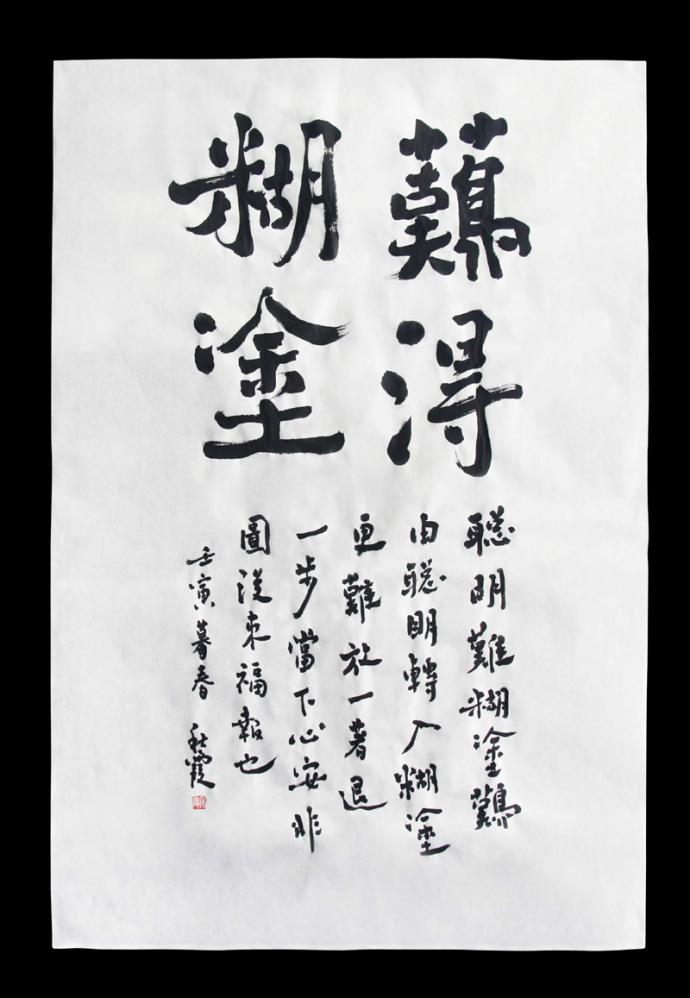 難得
糊塗
聰明難糊塗難
由聰明轉入糊塗
更難放一著退
一步當下心安非
圖後來福報也
壬寅暮春 秋霞